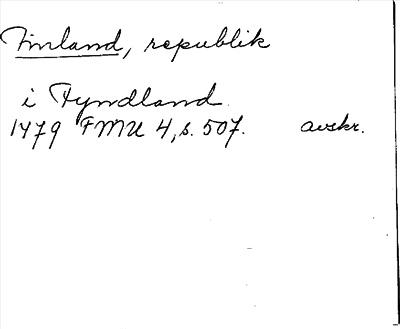 Finland, republik
i Fyndland
1479 FMU 4, s. 507. avskr.